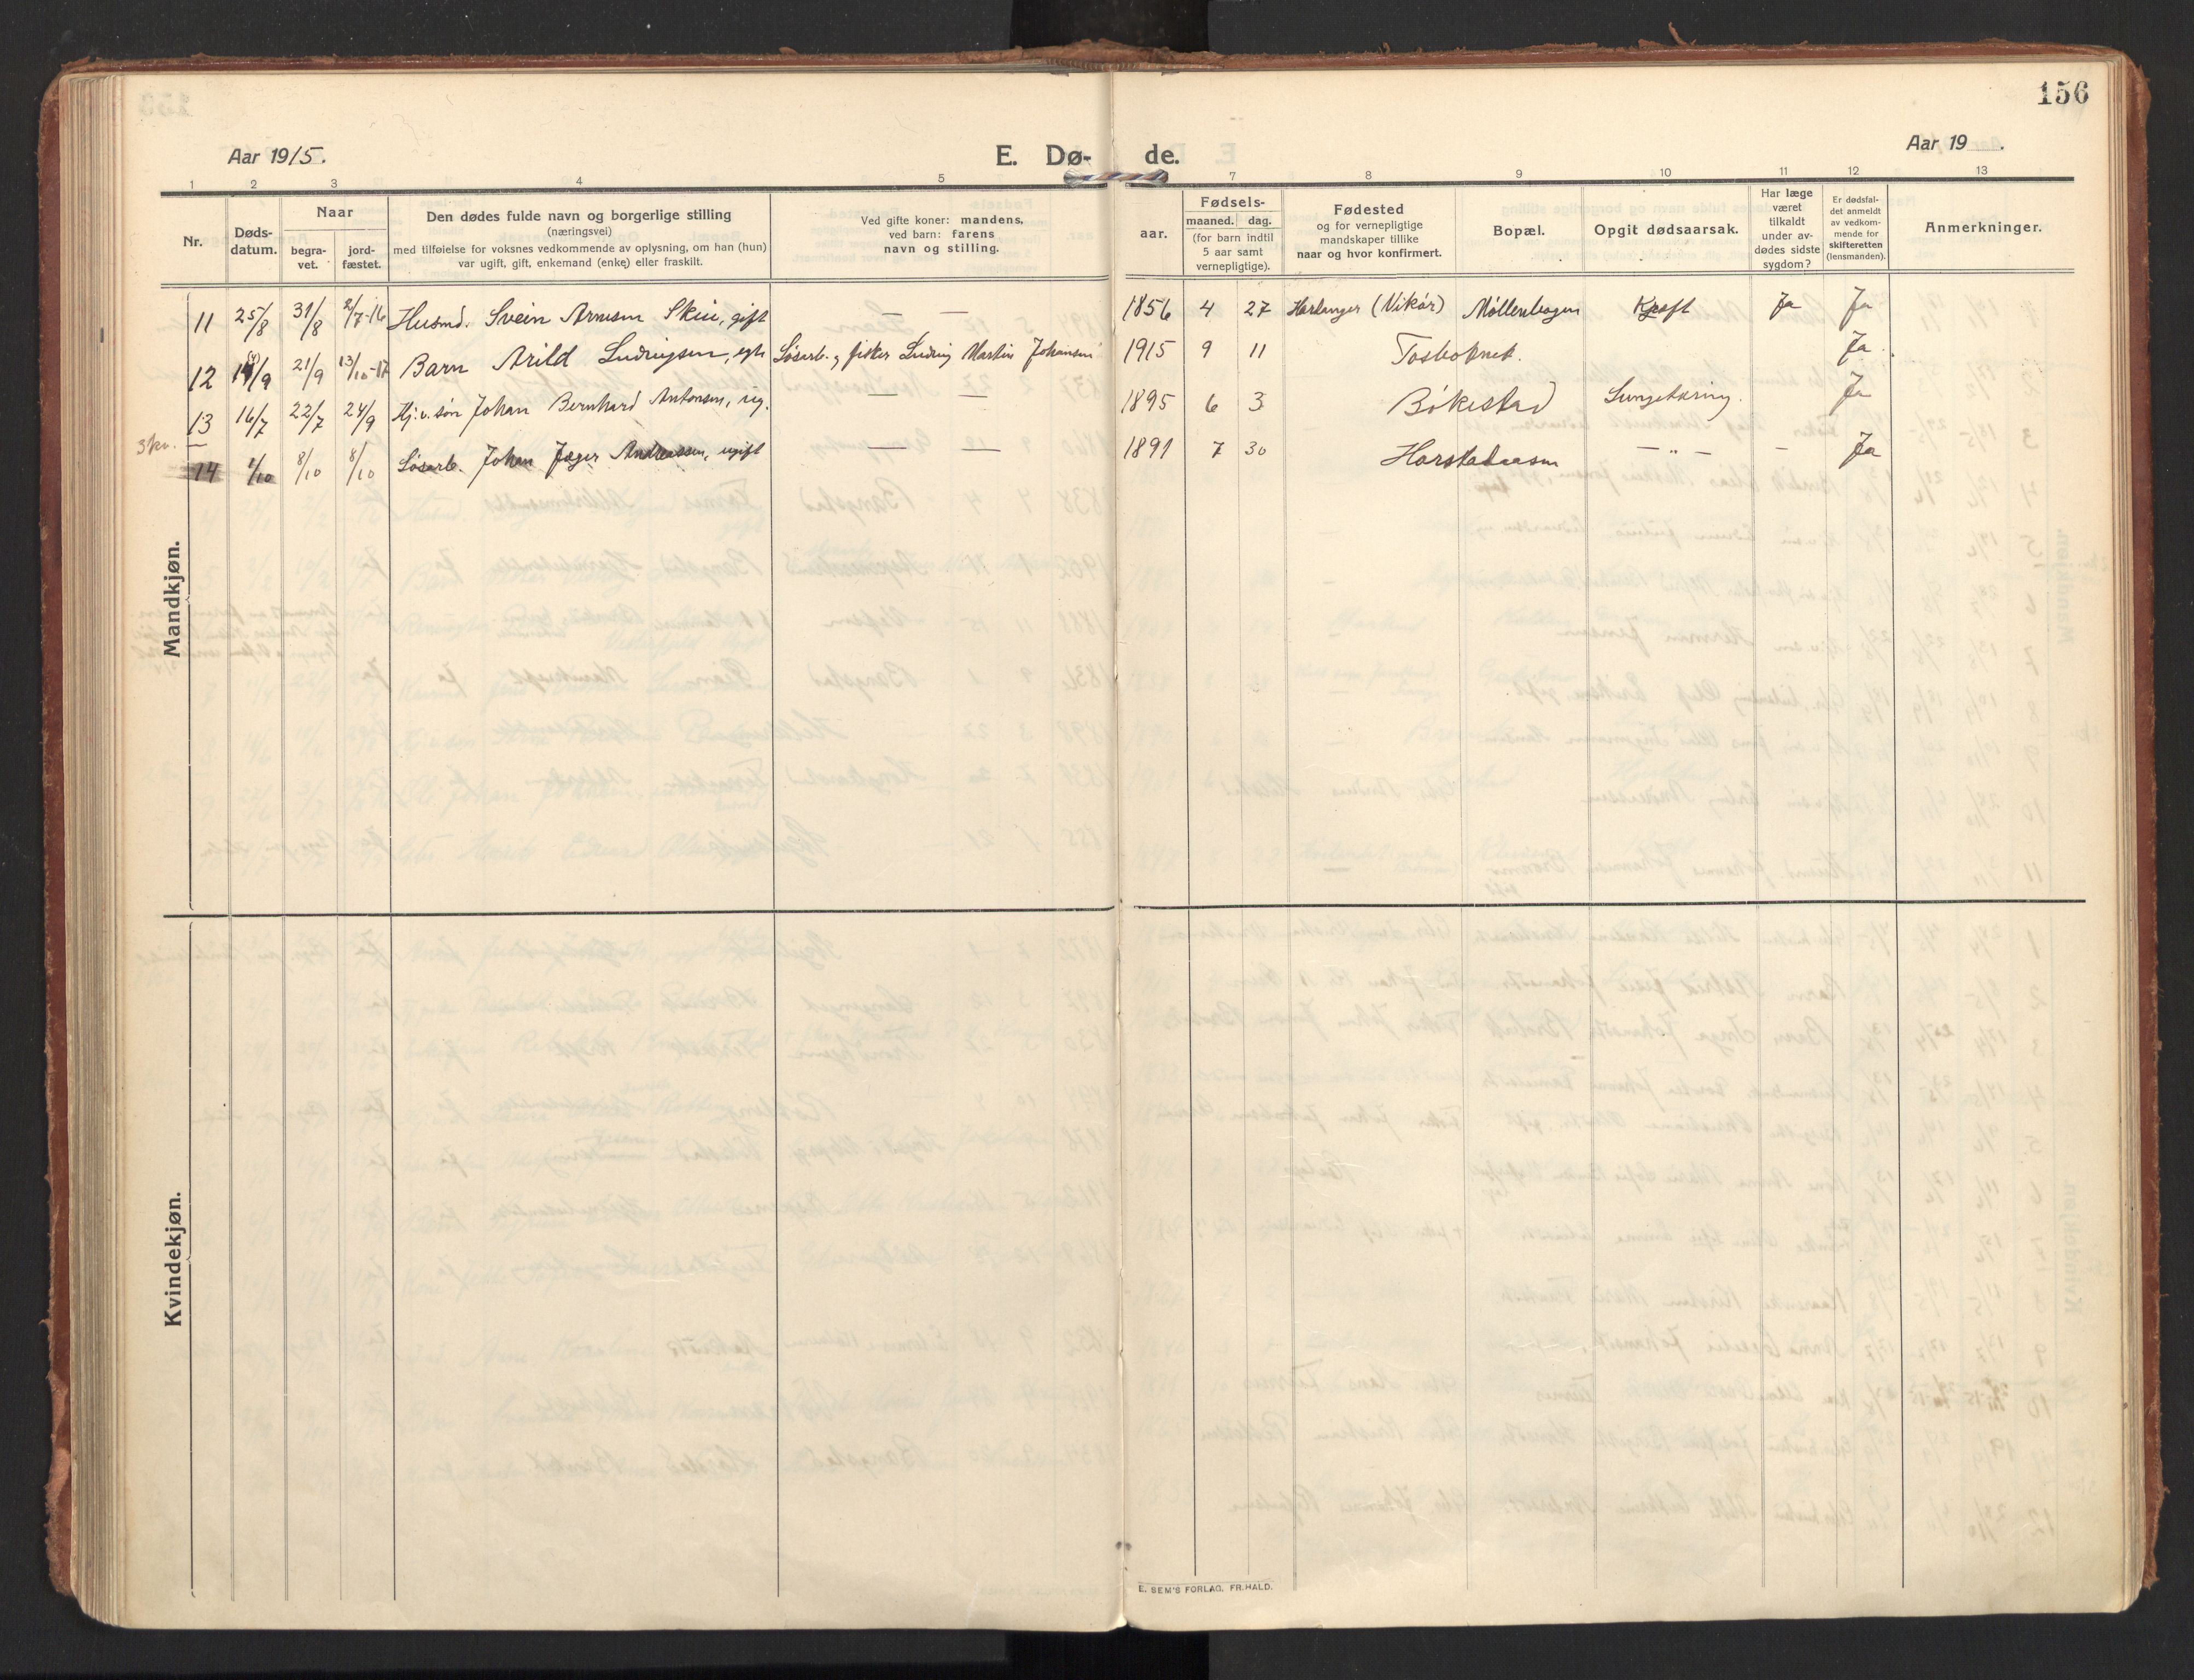 156
Aar 1915.
E. Dø- de.
Aar 19 .
1 2 3 4 5 7 8 9 10 11 12 13
Nr.
Døds-
datum.
Naar
begra-
vet.
jord-
fæstet.
Den dødes fulde navn og borgerlige stilling
(næringsvei)
med tilføielse for voksnes vedkommende av oplysning, om han (hun)
var ugift, gift, enkemand (enke) eller fraskilt.
Ved gifte koner: mandens,
ved barn: farens
navn og stilling.
Fødsels-
aar.
maaned. dag.
(for barn indtil
5 aar samt
vernepligtige).
Fødested
og for vernepligtige
mandskaper tillike
naar og hvor konfirmert.
Bopæl.
Opgit dødsaarsak.
Har læge
været
tilkaldt
under av-
dødes sidste
sygdom?
Er dødsfal-
det anmeldt
av vedkom-
mende for
skifteretten
(lensmanden).
Anmerkninger.
Mandkjøn.
11 25/8 31/8 2/7-16 Husmd. Svein Arnesen Skui, gift — — 1856 4 27 Hardanger (Vikør) Møllenhagen Kræft Ja Ja
12 21/9 13/10-17 Barn Arild Ludvigsen, egte Løsarb. og fisker Ludvig Martin Johansen 1915 9 11 Tosbotnet. Ja
13 16/7 22/7 24/9 Hj.v. søn Johan Bernhard Antonsen, ug. — — 1895 6 3 Bökestad Lungetæring. Ja
14 1/10 8/10 8/10 Løsarb. Johan Jæger Andreassen, ugift — — 1891 7 30 Horstadaasen — „ — — Ja
Kvindekjøn.
E. SEM'S FORLAG, FR.HALD.